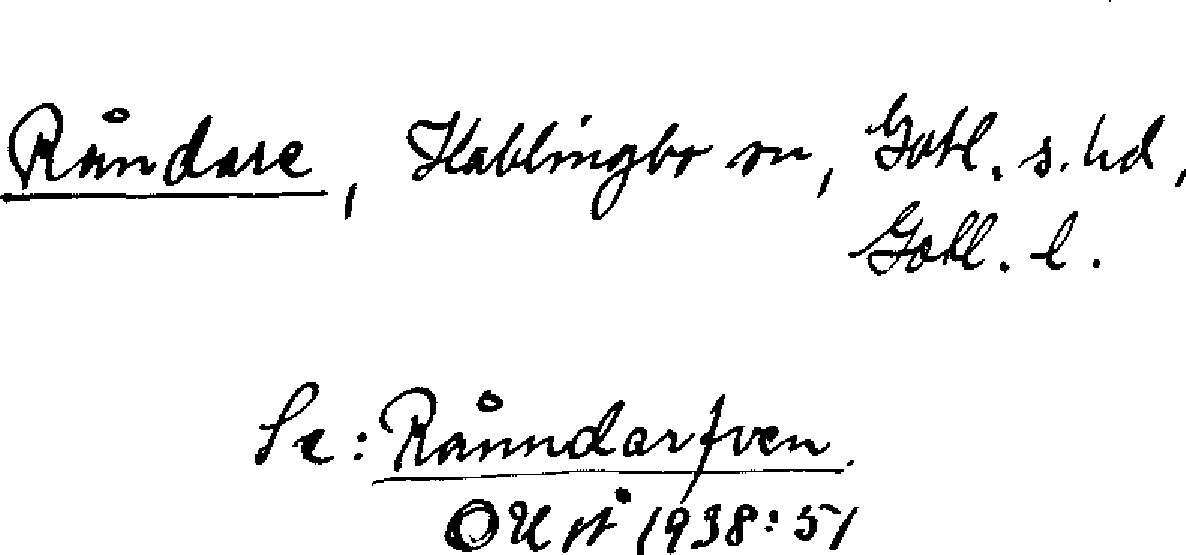 Råndare, Hablingbo sn, Gotl. s. hd,
Gotl. l.
Se: Rånndarfven.
OUÅ 1938:51